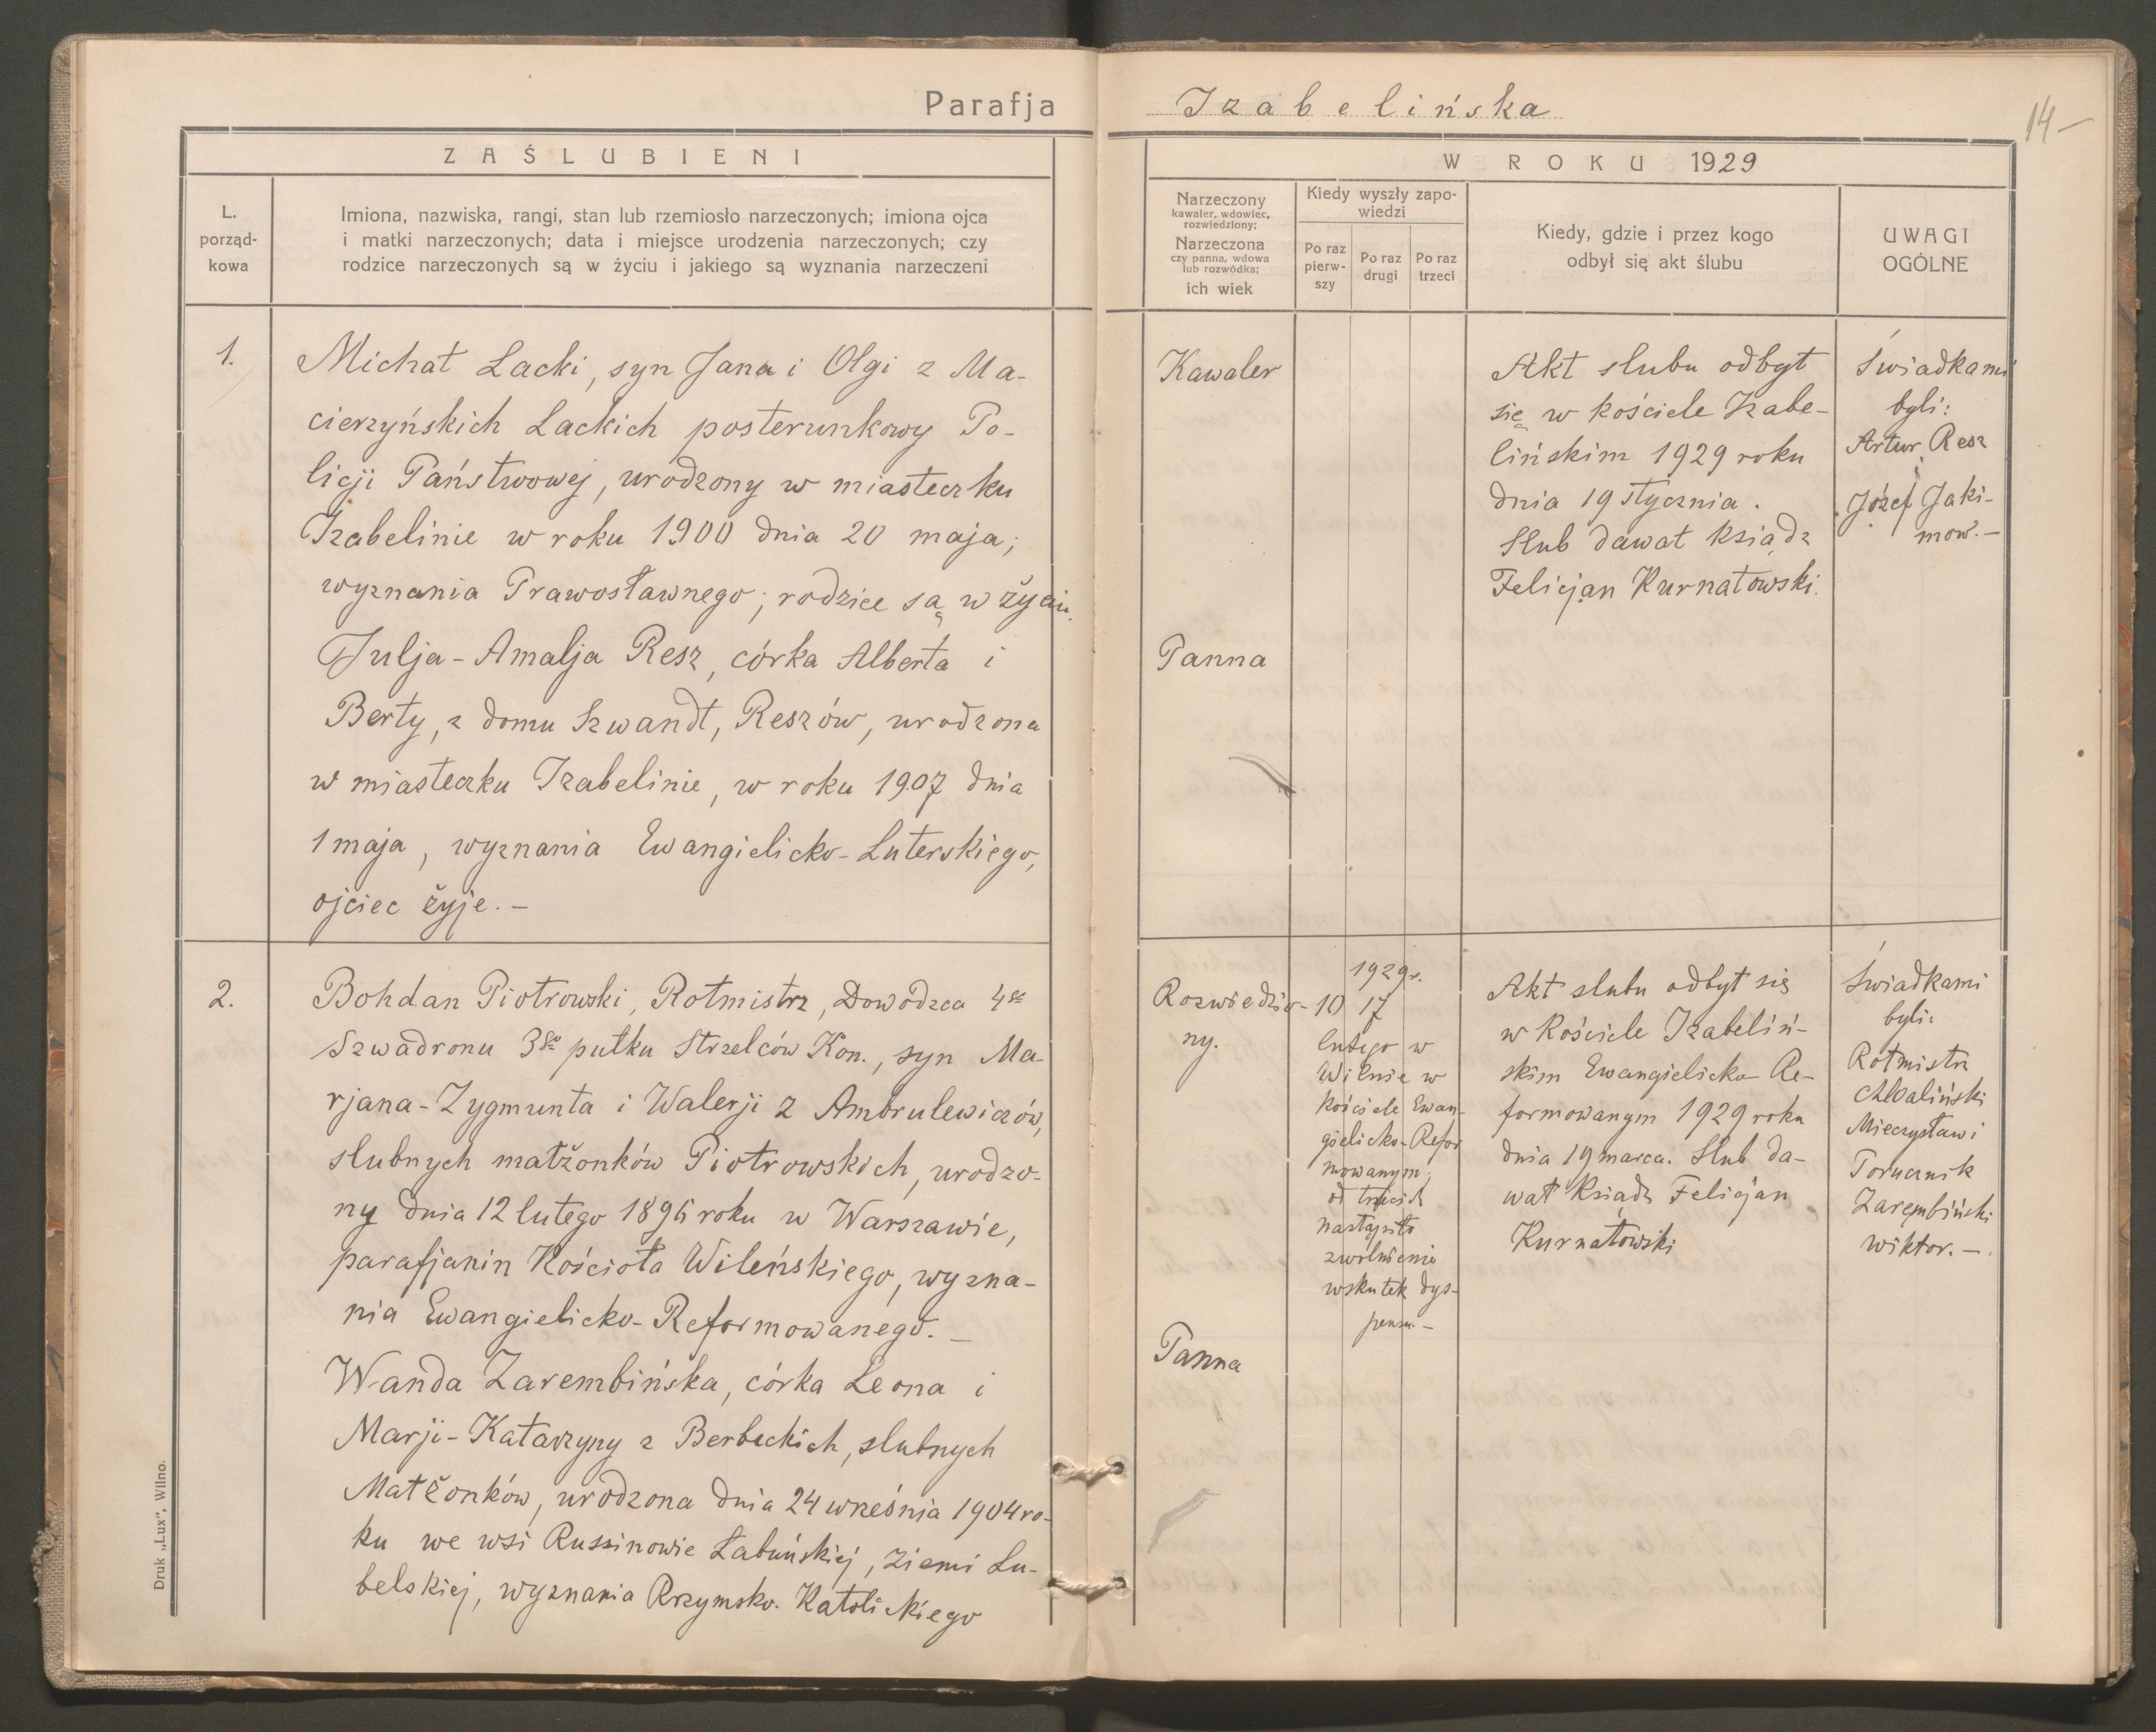 Parafja Izabelińska
14
ZAŚLUBIENI
W ROKU 1929
L.
porząd-
kowa
Imiona, nazwiska, rangi, stan lub rzemiosło narzeczonych; imiona ojca
i matki narzeczonych; data i miejsce urodzenia narzeczonych; czy
rodzice narzeczonych są w życiu i jakiego są wyznania narzeczeni
Narzeczony
kawaler, wdowiec,
rozwiedziony;
Narzeczona
czy panna, wdowa
lub rozwódka;
ich wiek
Kiedy wyszły zapo-
wiedzi
Po raz
pierw-
szy
Po raz
drugi
Po raz
trzeci
Kiedy, gdzie i przez kogo
odbył się akt ślubu
UWAGI
OGÓLNE
1.
Michał Lacki, syn Jana i Olgi z Ma-
cierzyńskich Lackich posterunkowy Po-
licji Państwowej, urodzony w miasteczku
Izabelinie w roku 1900 dnia 20 maja;
wyznania Prawosławnego; rodzice są w życiu.
Julja-Amalja Resz, córka Alberta i
Berty, z domu Szwandt, Reszów, urodzona
w miasteczku Izabelinie, w roku 1907 dnia
1 maja, wyznania Ewangielicko-Luterskiego,
ojciec żyje.-
Kawaler
Panna
Akt slubu odbył
się w kościele Izabe-
lińskim 1929 roku
dnia 19 stycznia.
Slub dawał ksiądz
Felicjan Kurnatowski.
Świadkami
byli:
Artur Resz
i
Józef Jaki-
mow.-
2.
Bohdan Piotrowski, Rotmistrz, Dowódzca 4go
Szwadronu 3go pułku Strzelców Kon., syn Ma-
rjana-Zygmunta i Walerji z Ambrulewiczów,
slubnych małżonków Piotrowskich, urodzo-
ny dnia 12 lutego 1896 roku w Warszawie,
parafjanin Kościoła Wileńskiego, wyzna-
nia Ewangielicko-Reformowanego.-
Wanda Zarembińska, córka Leona i
Marji-Katarzyny z Berbeckich, slubnych
Małżonków, urodzona dnia 24 września 1904 ro-
ku we wsi Russinowie Łabuńskiej, ziemi Lu-
belskiej, wyznania Rzymsko-Katolickiego
Rozwiedzio-
ny.
Panna
1929 r.
10 17
lutego w
Wilnie w
kościele Ewan-
gielicko-Refor
mowanym;
od trzecich
nastąpiło
zwolnienie
wskutek dys-
pensu.-
Akt slubu odbył się
w Kościele Izabeliń-
skim Ewangielicko-Re-
formowanym 1929 roku
dnia 19 marca. Slub da-
wał Ksiądz Felicjan
Kurnatowski
Świadkami
byli:
Rotmistrz
Mieczysław i
Porucznik
Zarembiński
Wiktor.-
Druk „Lux", Wilno.